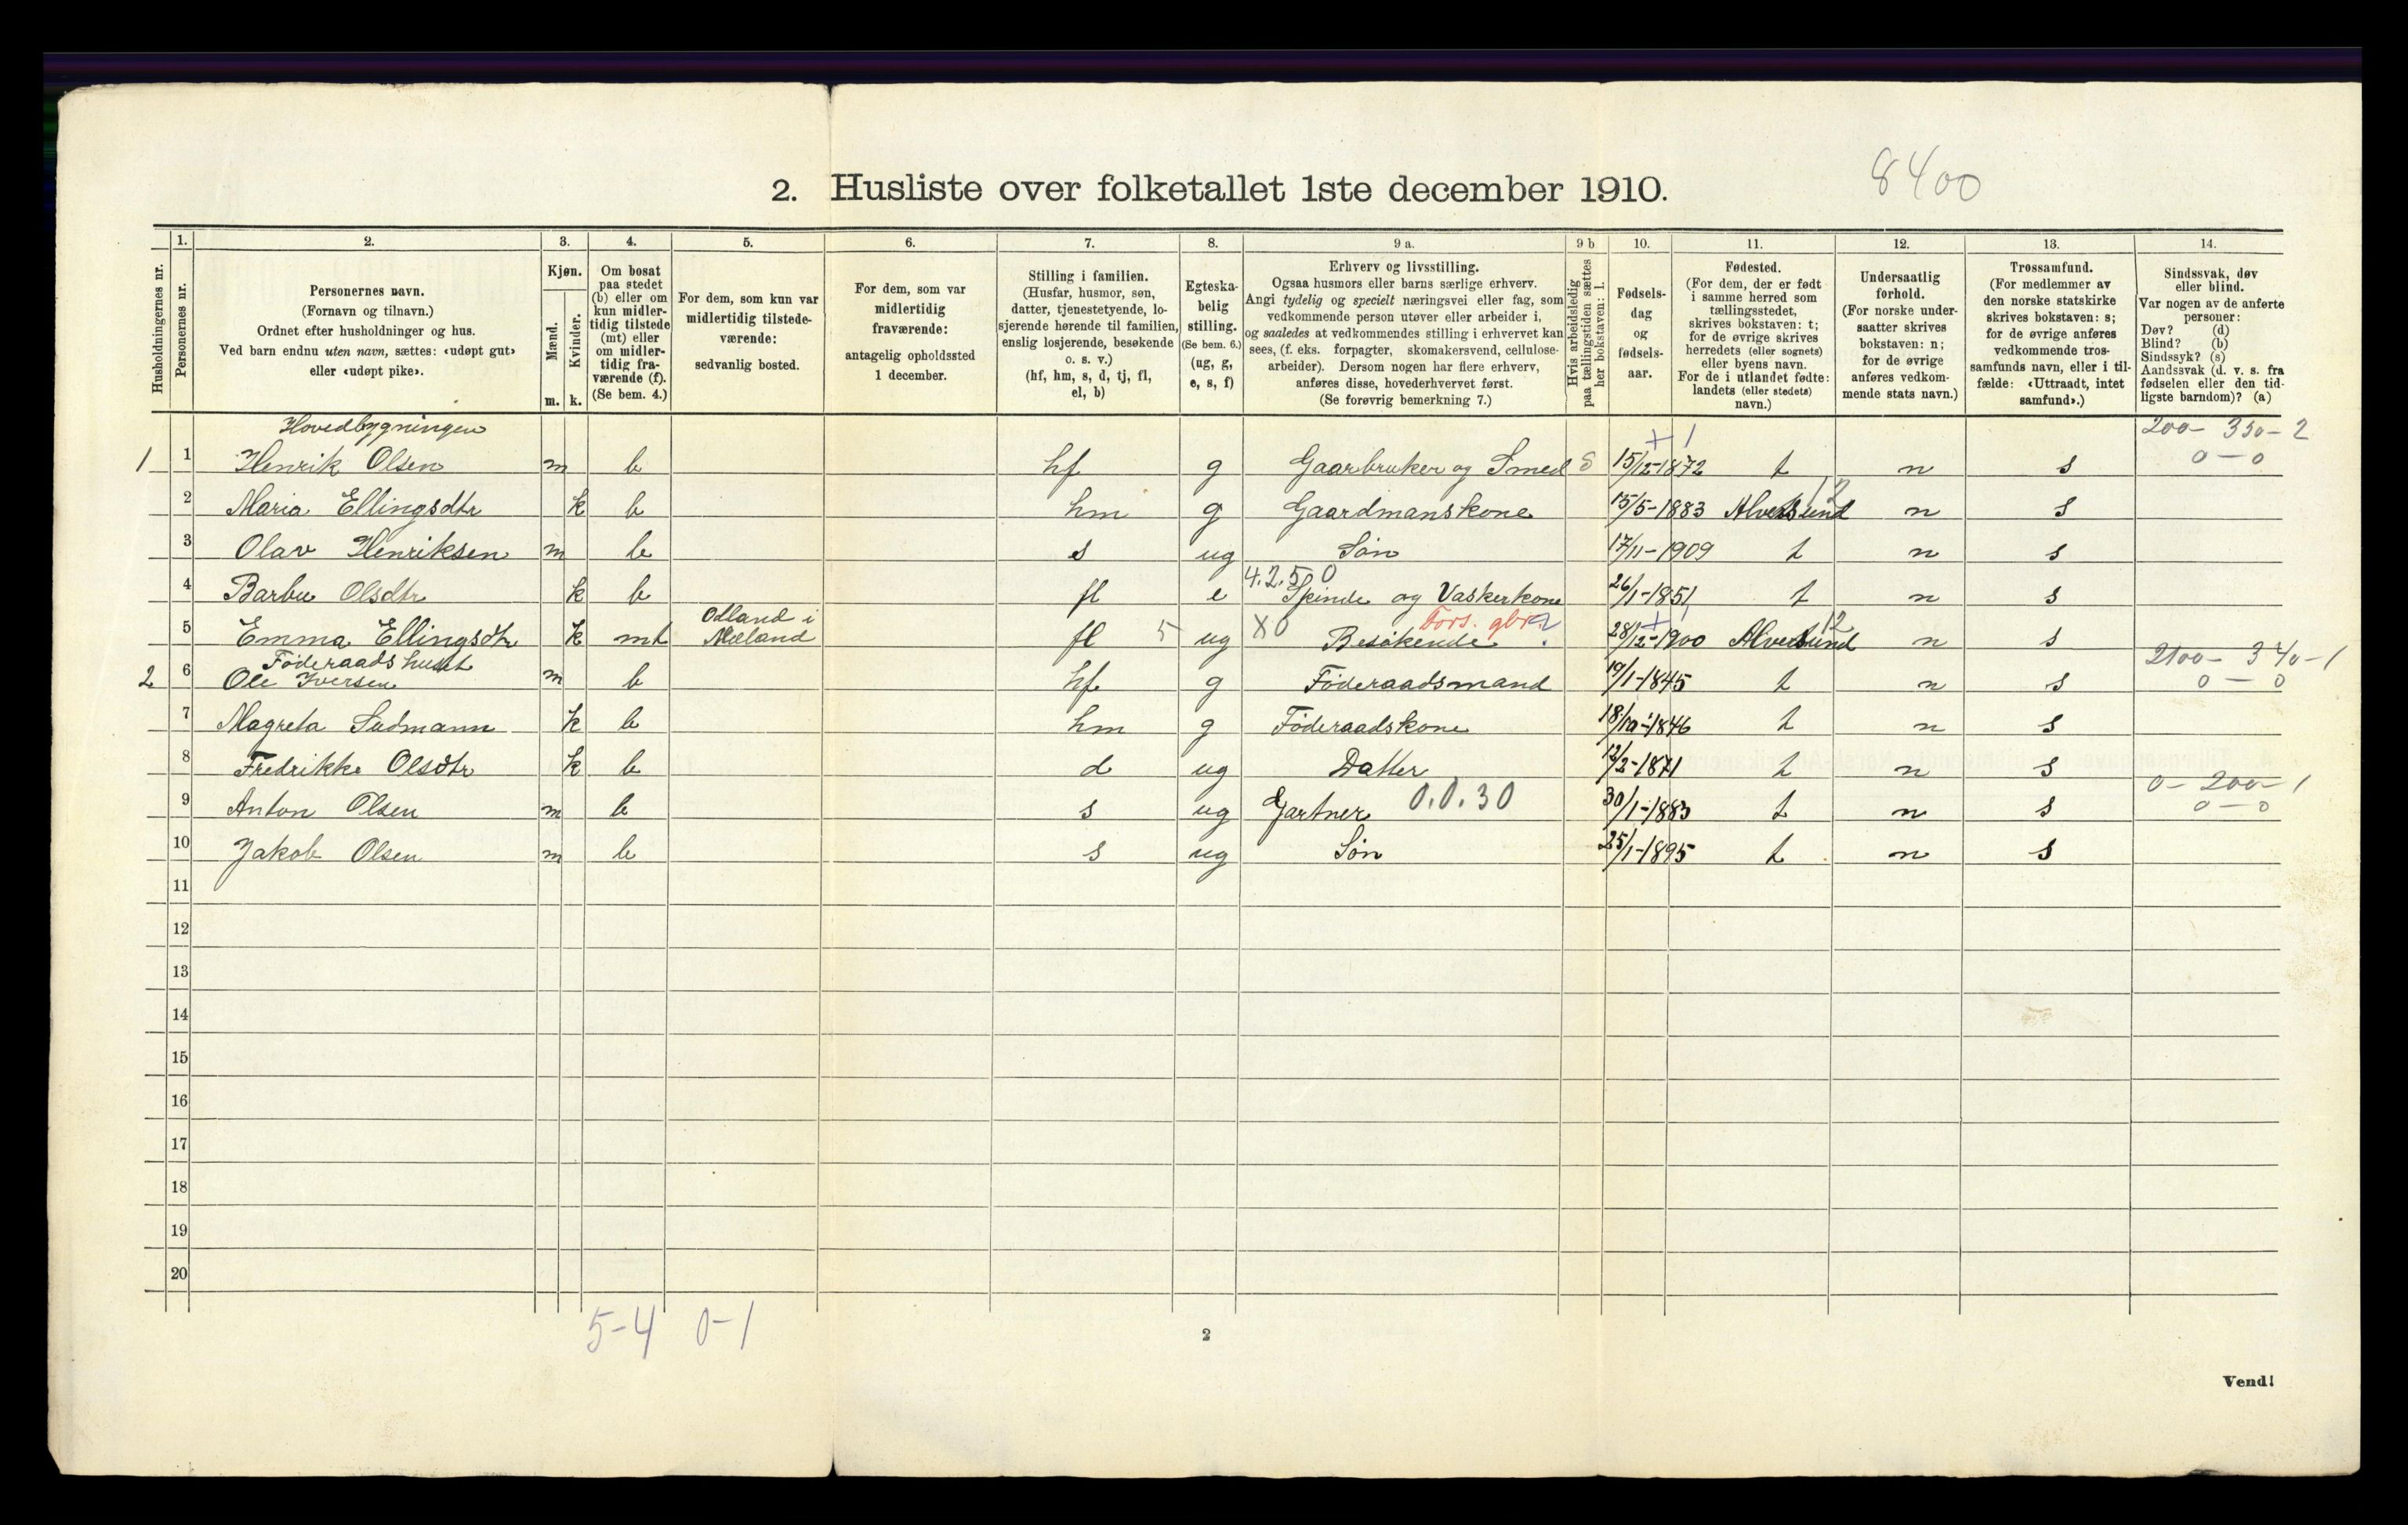 8400
2. Husliste over folketallet 1ste december 1910.
Husholdningernes nr.
1.
Personernes nr.
2.
Personernes navn.
(Fornavn og tilnavn.)
Ordnet efter husholdninger og hus.
Ved barn endnu uten navn, sættes: «udøpt gut»
eller «udøpt pike».
3.
Kjøn.
Mænd.
Kvinder.
m. k.
4.
Om bosat
paa stedet
(b) eller om
kun midler-
tidig tilstede
(mt) eller
om midler-
tidig fra-
værende (f).
(Se bem. 4.)
5.
For dem, som kun var
midlertidig tilstede-
værende:
sedvanlig bosted.
6.
For dem, som var
midlertidig
fraværende:
antagelig opholdssted
1 december.
7.
Stilling i familien.
(Husfar, husmor, søn,
datter, tjenestetyende, lo-
sjerende hørende til familien,
enslig losjerende, besøkende
o. s. v.)
(hf, hm, s, d, tj, fl,
el, b)
8.
Egteska-
belig
stilling.
(Se bem. 6.)
(ug, g,
e, s, f)
9 a.
Erhverv og livsstilling.
Ogsaa husmors eller barns særlige erhverv.
Angi tydelig og specielt næringsvei eller fag, som
vedkommende person utøver eller arbeider i,
og saaledes at vedkommendes stilling i erhvervet kan
sees, (f. eks. forpagter, skomakersvend, cellulose-
arbeider). Dersom nogen har flere erhverv,
anføres disse, hovederhvervet først.
(Se forøvrig bemerkning 7.)
9 b
Hvis arbeidsledig
paa tællingstiden sættes
her bokstaven: l.
10.
Fødsels-
dag
og
fødsels-
aar.
11.
Fødested.
(For dem, der er født
i samme herred som
tællingsstedet,
skrives bokstaven: t;
for de øvrige skrives
herredets (eller sognets)
eller byens navn.
For de i utlandet fødte:
landets (eller stedets)
navn.)
12.
Undersaatlig
forhold.
(For norske under-
saatter skrives
bokstaven: n;
for de øvrige
anføres vedkom-
mende stats navn.)
13.
Trossamfund.
(For medlemmer av
den norske statskirke
skrives bokstaven: s;
for de øvrige anføres
vedkommende tros-
samfunds navn, eller i til-
fælde: «Uttraadt, intet
samfund».)
14.
Sindssvak, døv
eller blind.
Var nogen av de anførte
personer:
Døv? (d)
Blind? (b)
Sindssyk? (s)
Aandssvak (d. v. s. fra
fødselen eller den tid-
ligste barndom)? (a)
Hovedbygningen
200 - 350 - 2
1 1 Henrik Olsen m b hf g Gaarbruker og Smed 15/12-1872 t n s 0 - 0
2 Maria Ellingsdtr k b hm g Gaardmanskone 15/5-1883 Alversund n s
3 Olav Henriksen m b s ug Søn 17/11-1909 t n s
4.2.50
4 Barbu Olsdtr k b fl e Spinde og Vaskerkone 26/1-1851 t n s
Odland i
Fors. gbr.
5 Emma Ellingsdtr k mt Mæland fl 5 ug X0 Besøkende 28/12-1900 Alversund 12 n s
Føderaadshuset
2100 - 340 - 1
2 6 Ole Iversen m b hf g Føderaadsmand 19/1-1845 t n s 0 - 0
7 Magreta Sudmann k b hm g Føderaadskone 18/10-1846 t n s
8 Fredrikke Olsdtr k b d ug Datter 12/2-1871 t n s
0 - 200 - 1
9 Anton Olsen m b s ug Gartner 0.0.30 30/1-1883 t n s 0 - 0
10 Jakob Olsen m b s ug Søn 25/1-1895 t n s
11
12
13
14
15
16
17
18
19
20
5-4 0-1
2
Vend!